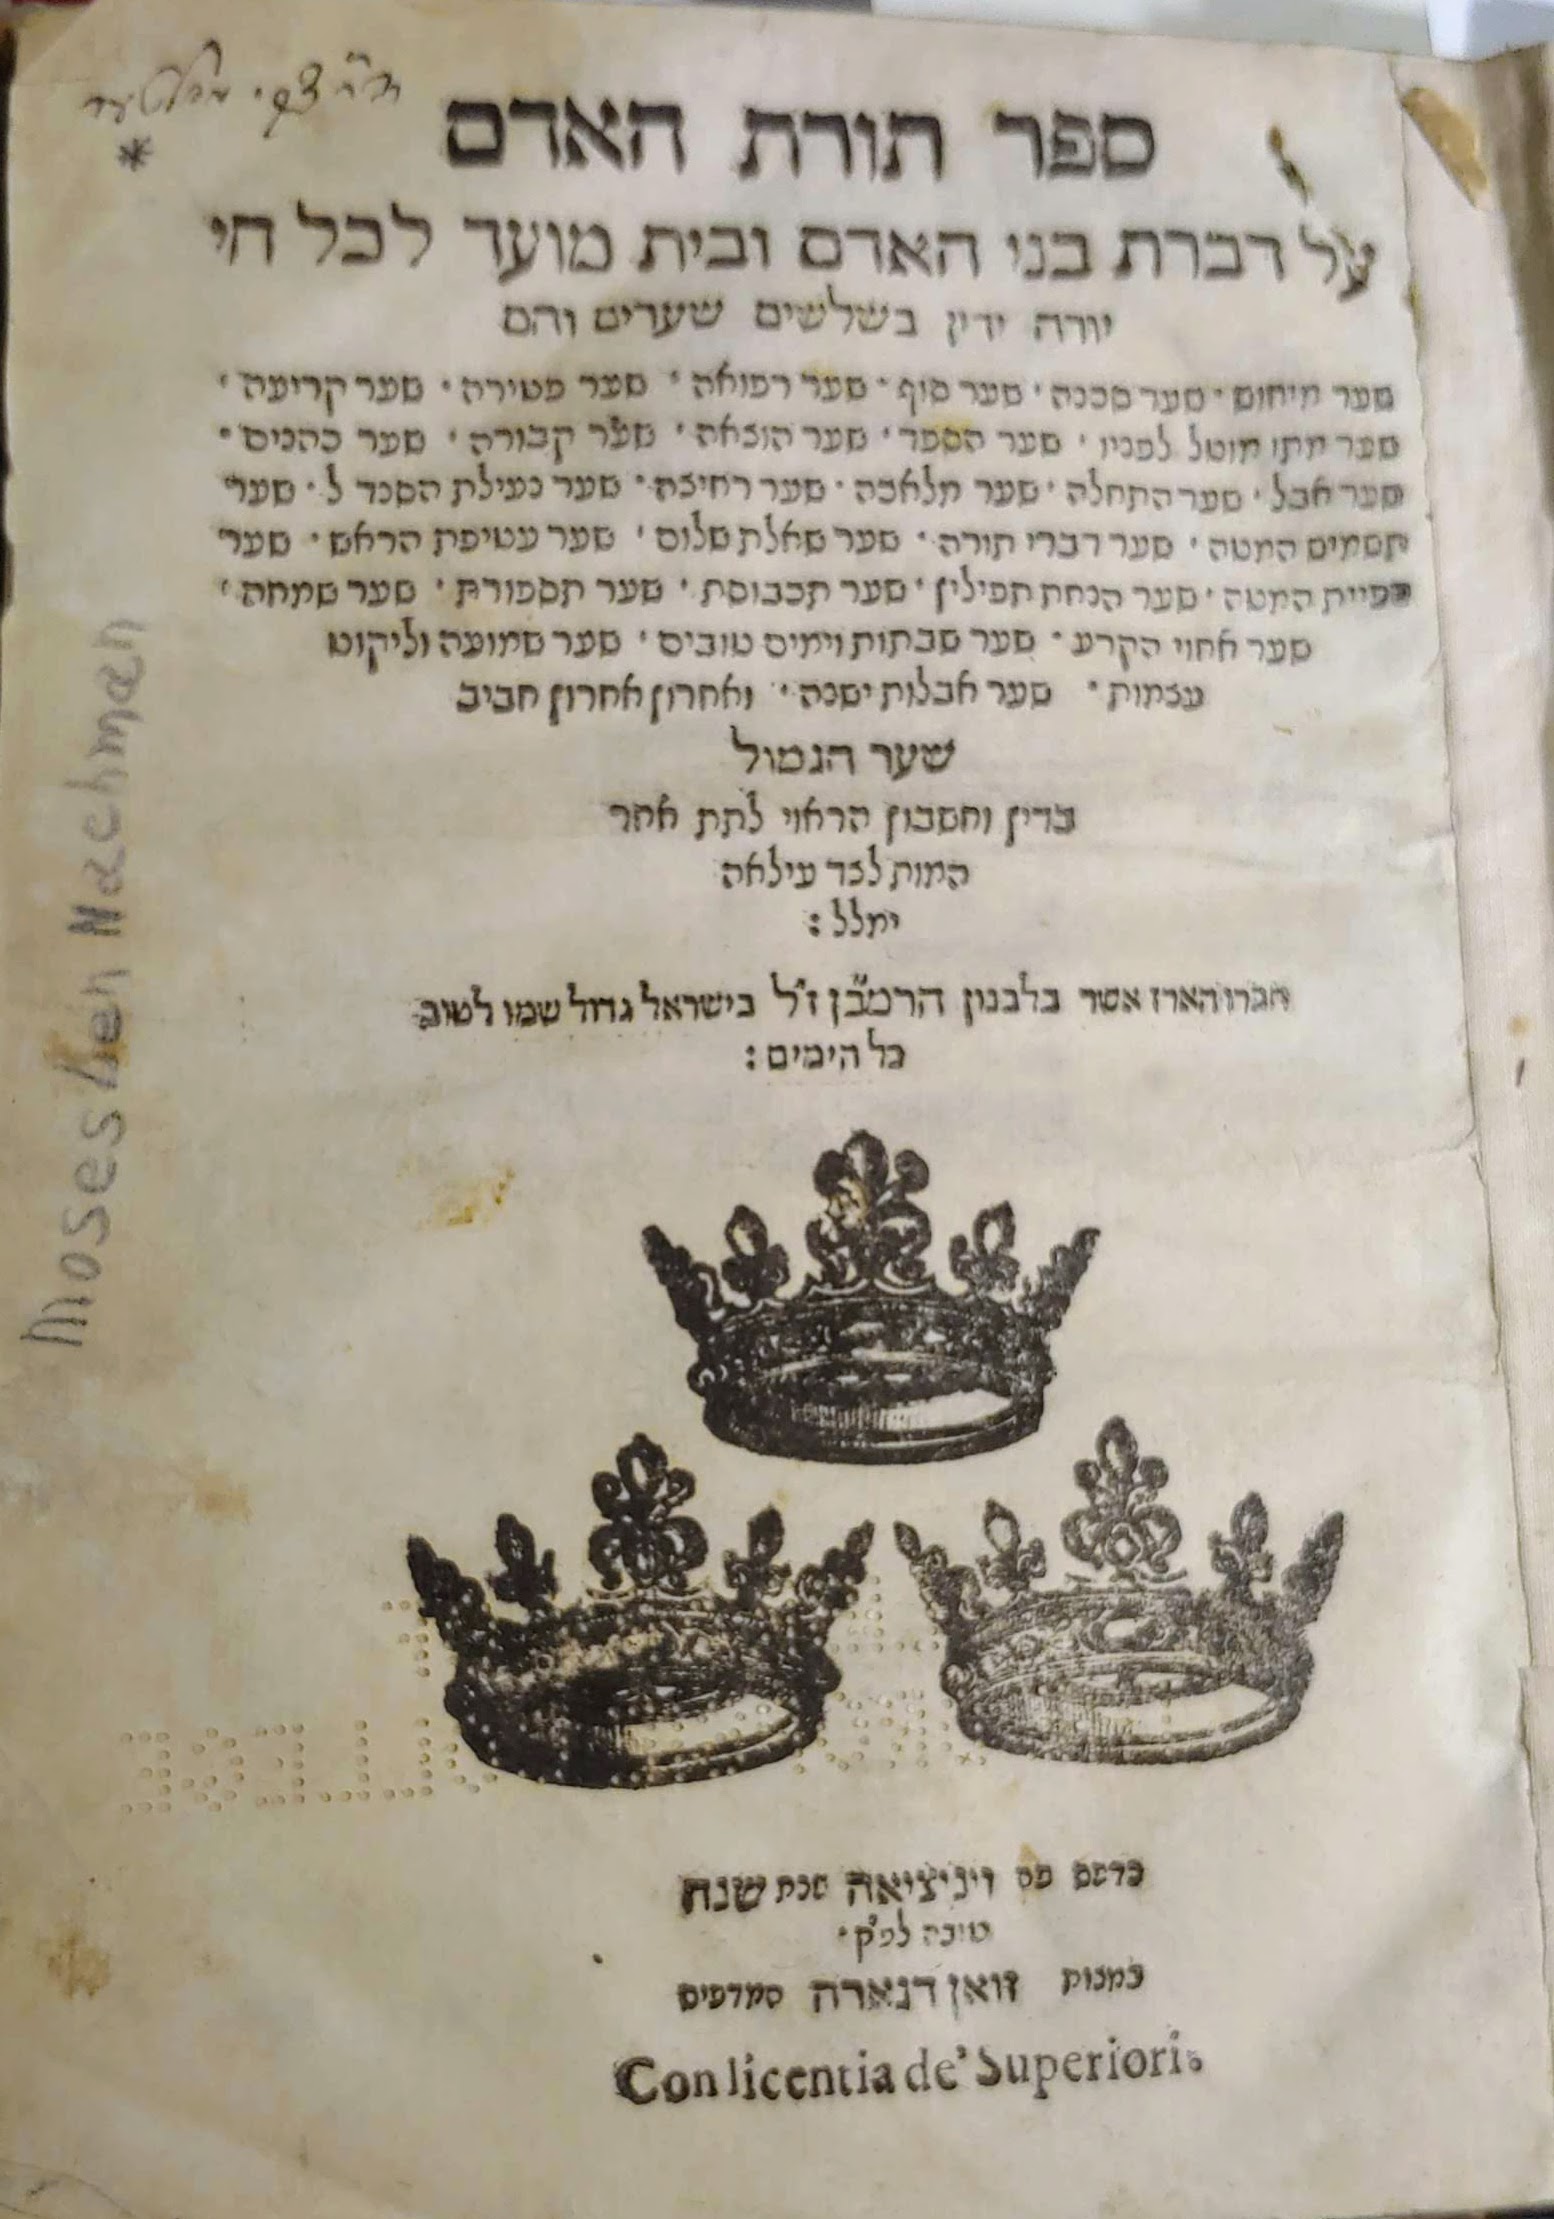 ספר תורת האדם
על דברת בני האדם ובית מועד לכל חי
יורה ידין בשלשים שערים והם
שער מיחוש · שער סכנה · שער סוף · שער רפואה · שער פטירה · שער קריעה ·
שער מתו מוטל לפניו · שער הספד · שער הוצאה · שער קבורה · שער כהנים ·
שער אבל · שער התחלה · שער מלאכה · שער רחיצה · שער נעילת הסנדל · שער
תשמיש המטה · שער דברי תורה · שער שאלת שלום · שער עטיפת הראש · שער
כפיית המטה · שער הנחת תפילין · שער תכבוסת · שער תספורת · שער שמחה ·
שער אחוי הקרע · שער שבתות וימים טובים · שער שמועה וליקוט
עצמות · שער אבלות ישנה · ואחרון אחרון חביב
שער הגמול
בדין וחשבון הראוי לתת אחר
המות לצד עילאה
ימלל :
חברו הארז אשר בלבנון הרמב"ן ז"ל בישראל גדול שמו לטוב
כל הימים :
Moses ben Nachman
נדפס פה ויניציאה שנת שנה
טובה לפ"ק ·
במצות זואן דגארה
Con licentia de' Superiori.